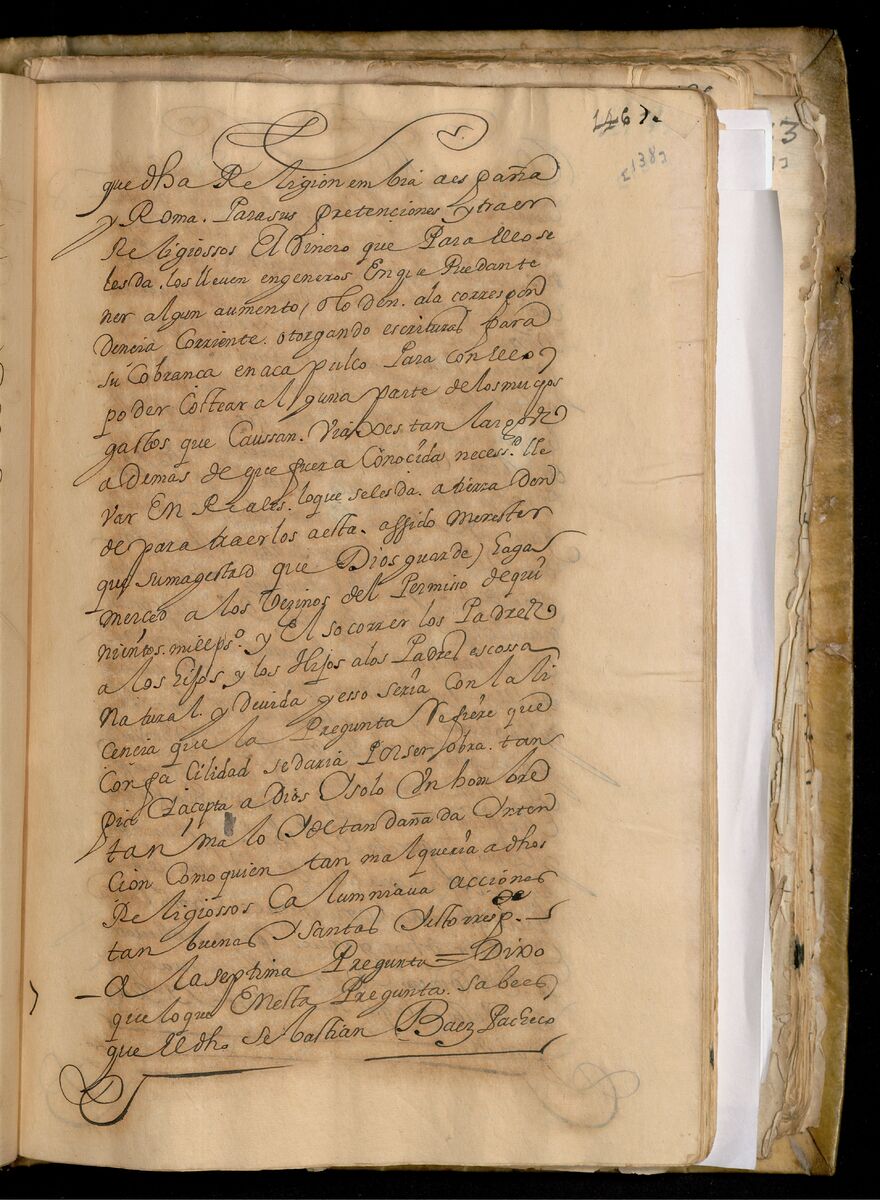 1467.
[138]
que dha Religion embia a españa
y Roma. Para sus pretenciones y traer
Religiossos El Dinero que Para ello se
les da. los lleuen en generos En que Puedan te
ner algun aumento, o lo den. a la correspon
dencia Corriente. otorgando escrituras para
su Cobranca en acapulco Para con ello
poder Costear alguna parte de los muchos
gastos que Caussan. Viaxes tan largos
ademas de que fuera Conocida necess.ᵈ lle
var En Reales. lo que se les da. a tierra don
de para traerlos a esta. assido menester
que su magestad que Dios guarde) haga
merced a los Vezinos del Permisso de qui
nientos. mill ps.ᵒ y El socorrer los Padres
a los hijos y los Hijos a los Padres es cossa
Natural. y Deuida y esso seria Con la li
cencia que la Pregunta Refiere que
Con facilidad se daria Por ser obra. tan
Pia y acepta a Dios Y solo Vn hombre
tan malo Y de tan dañada Ynten
cion Como quien tan mal queria a dhos
Religiossos Calumniaua acciones
tan buenas Y santas Y esto resp.ᵈᵉ
A la septima Pregunta = Dixo
que lo que En esta Pregunta. sabe es
que El dho. Sebastian Baez Pacheco